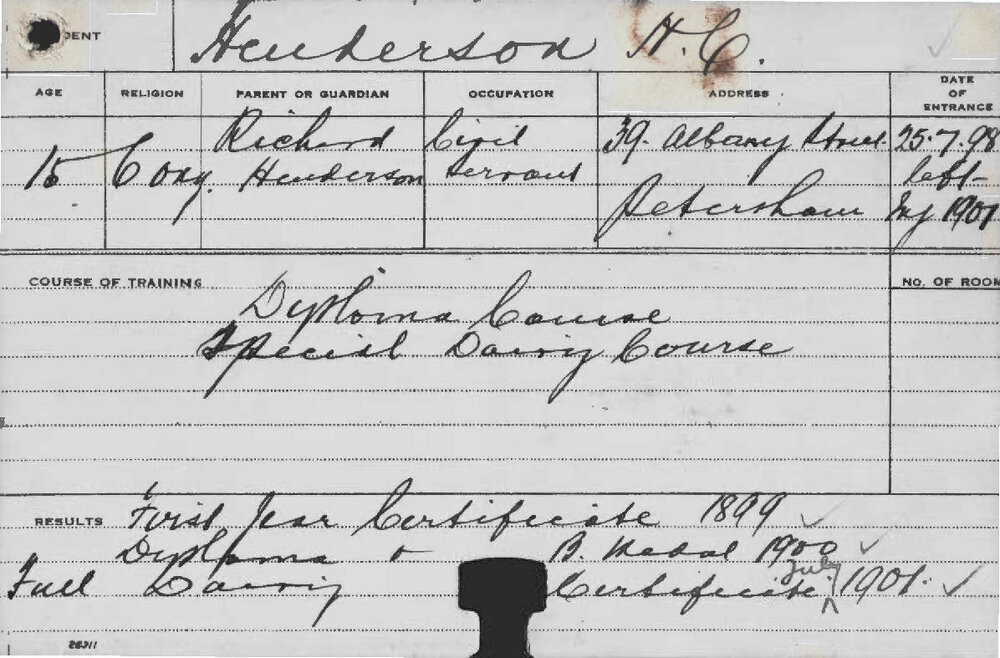 DENT Henderson H.C.
AGE RELIGION PARENT OR GUARDIAN OCCUPATION ADDRESS DATE OF ENTRANCE
15 Cong. Richard Henderson Civil Servant 39. Albany Street Petersham 25.7.98 left July 1901
COURSE OF TRAINING NO. OF ROOM
Dyploma Course
Special Dairy Course
RESULTS First Year Certificate 1899
Dyploma & B. Medal 1900
Full Dairy Certificate July 1901.
26311